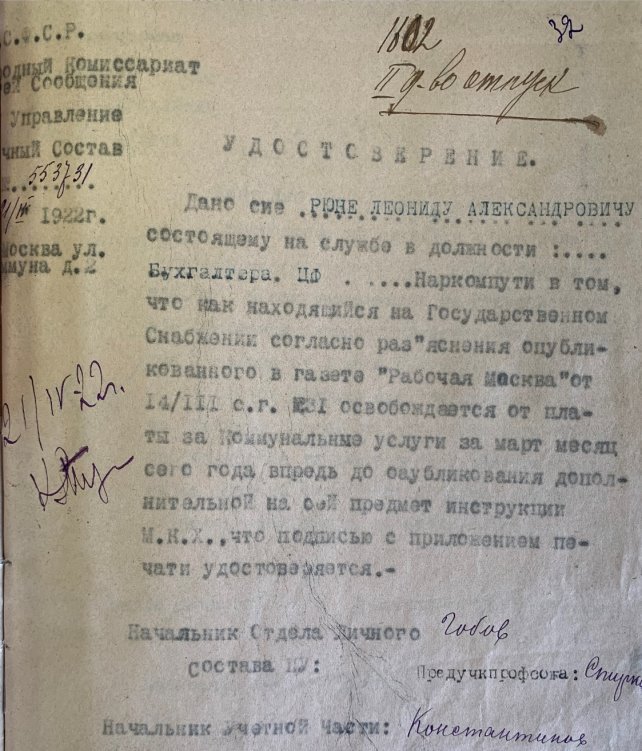 .С.Ф.С.Р.
одный Комиссариат
ей Сообщения
Управление
чный Состав
553731
1922г.
осква ул.
ммуна д.2
1802
32
II
отпуск
УДОСТОВЕРЕНИЕ.
Дано сие .РЮНЕ ЛЕОНИДУ АЛЕКСАНДРОВИЧУ
состоящему на службе в должности :....
Бухгалтера. ЦФ . ....Наркомпути в том,
что как находящийся на Государственном
Снабжении согласно раз"яснения опубли-
кованного в газете "Рабочая Москва"от
14/III с.г. №31 освобождается от пла-
ты за Коммунальные услуги за март месяц
сего года впредь до опубликования допол-
нительной на сей предмет инструкции
М.К.Х.,что подписью с приложением пе-
чати удостоверяется.-
21/IV-22г.
Начальник Отдела Личного Гобов
состава ЦУ:
Предучкпрофсожа:
Начальник Учетной Части: Константинов